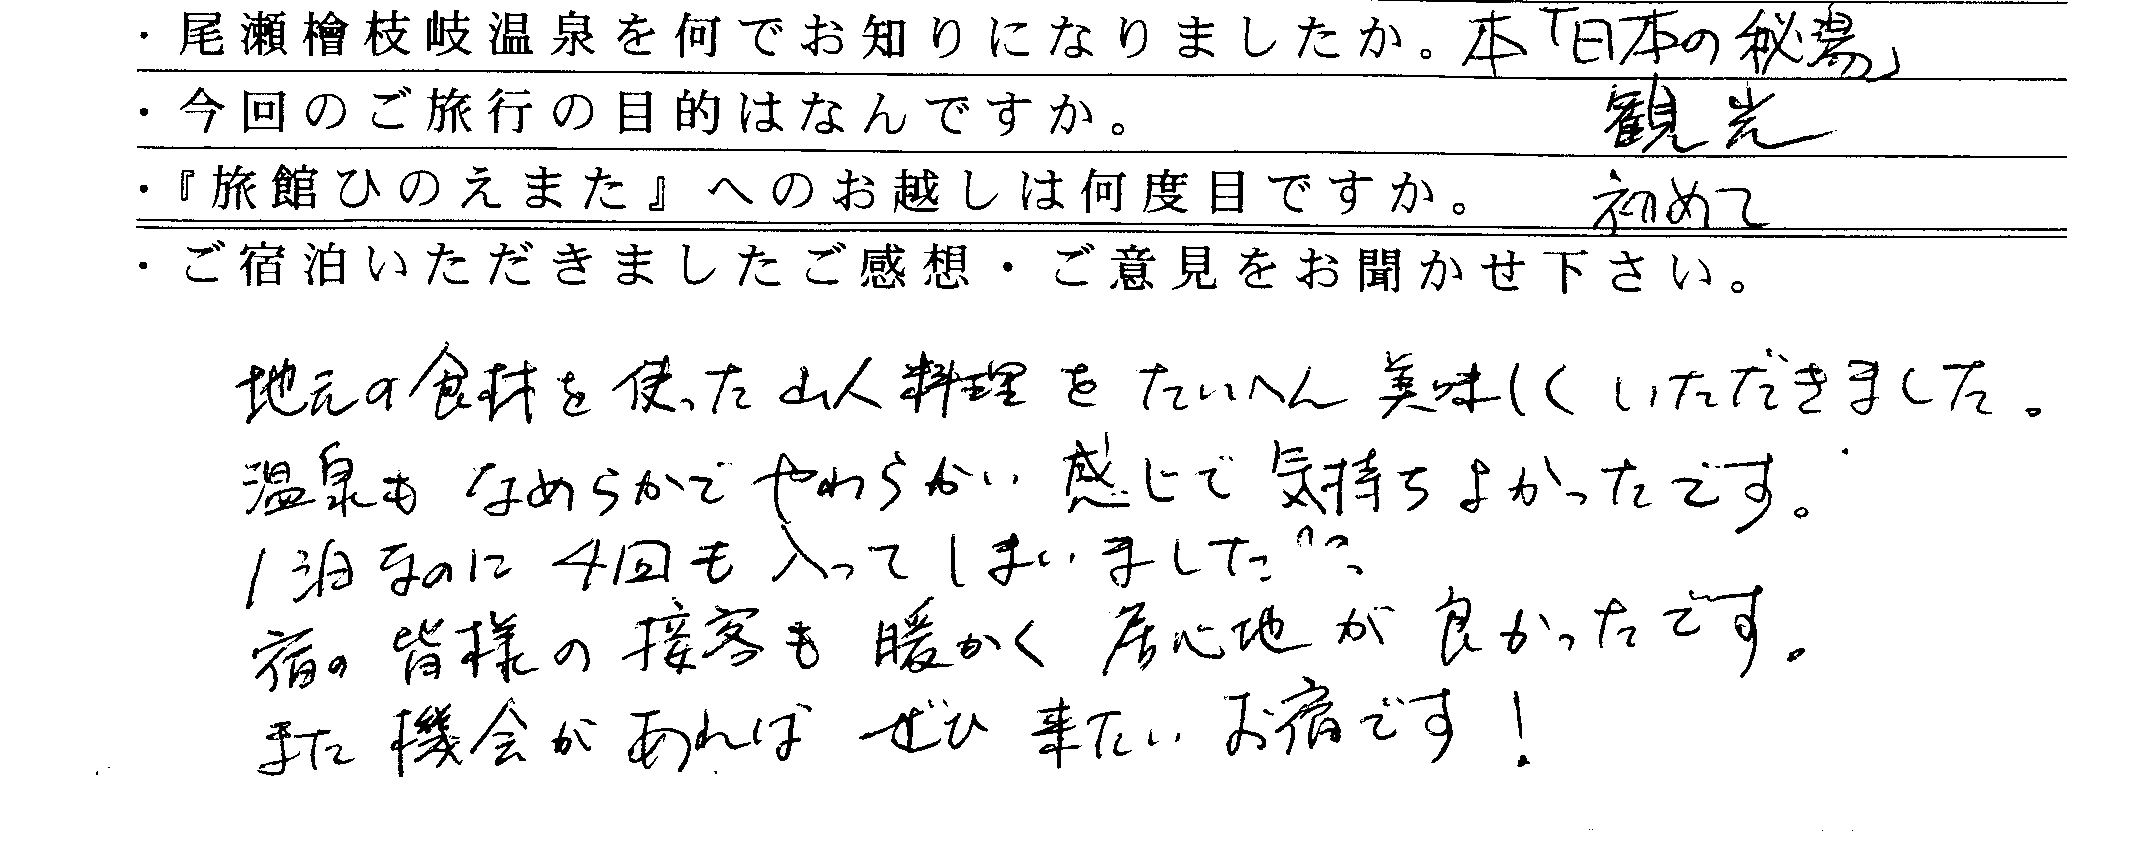 ・尾瀬檜枝岐温泉を何でお知りになりましたか。本「日本の秘湯」
・今回のご旅行の目的はなんですか。 観光
・『旅館ひのえまた』へのお越しは何度目ですか。 初めて
・ご宿泊いただきましたご感想・ご意見をお聞かせ下さい。
地元の食材を使った山人料理をたいへん美味しくいただきました。
温泉もなめらかでやわらかい感じで気持ちよかったです。
1泊なのに4回も入ってしまいました^^
宿の皆様の接客も暖かく居心地が良かったです。
また機会があればぜひ来たいお宿です!